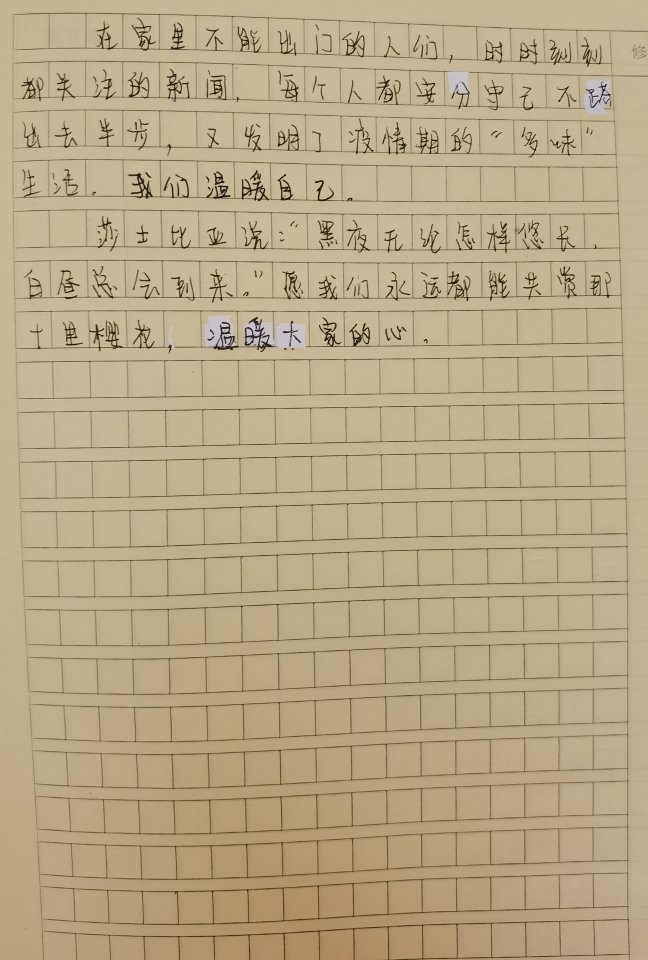 在家里不能出门的人们，时时刻刻
修
都关注的新闻，每个人都安分守己不踏
出去半步，又发明了疫情期的“多味”
生活。我们温暖自己。
莎士比亚说：“黑夜无论怎样悠长，
白昼总会到来。”愿我们永远都能共赏那
十里樱花，温暖大家的心。